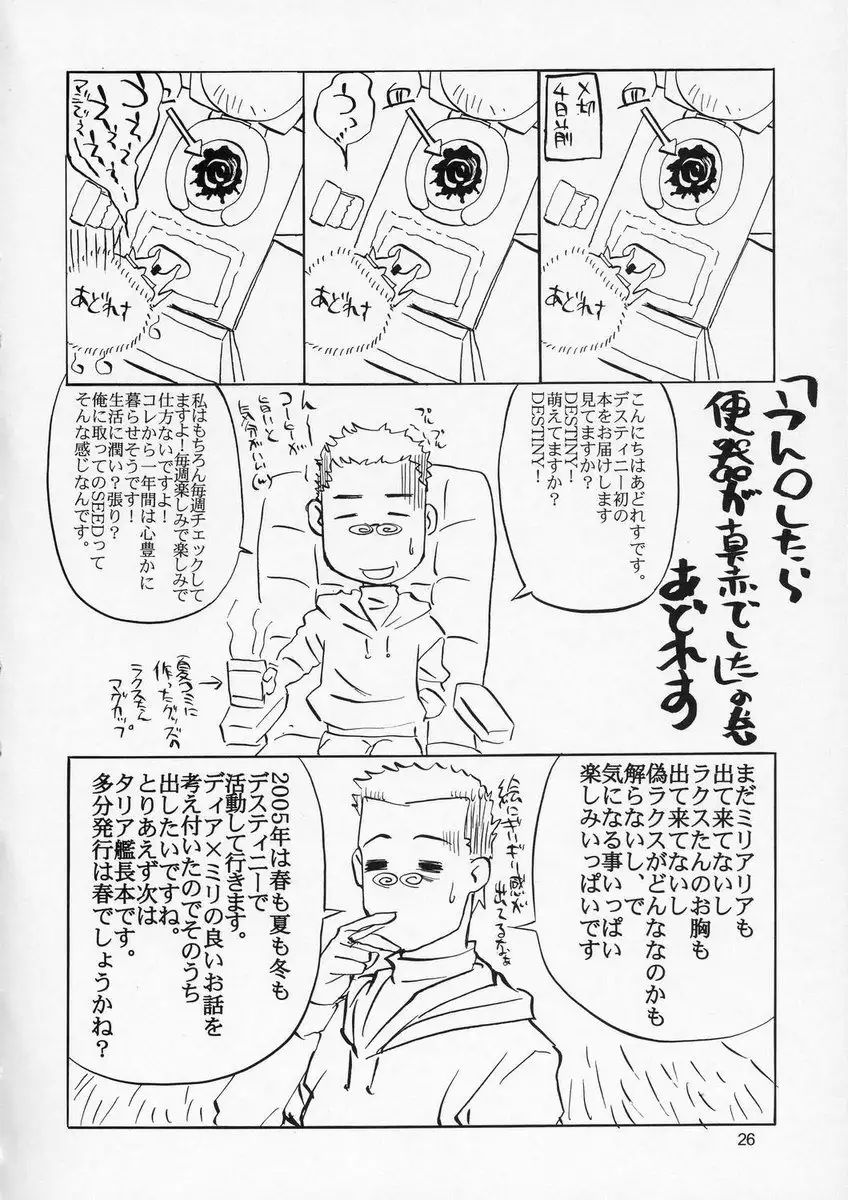 〆切
4日前
血
あどれす
うっ
血
あどれす
あどれす
「うん〇したら
便器が真赤でした」の巻
あどれす
こんにちはあどれすです。
デスティニー初の
本をお届けします
見てますか?
DESTINY!
萌えてますか?
DESTINY!
プルプル
プルプル
コーヒーが
旨いと
気分がいい
私はもちろん毎週チェックして
ますよ!毎週楽しみで楽しみで
仕方ないですよ!
コレから一年間は心豊かに
暮らせそうです!
生活に潤い?張り?
俺に取ってのSEEDって
そんな感じなんです。
夏コミに
作ったグッズの
ラクスたん
マグカップ。
まだミリアリアも
出て来てないし
ラクスたんのお胸も
出て来てないし
偽ラクスがどんななのかも
解らないし、で
気になる事いっぱい
楽しみいっぱいです
絵にぎりぎり感が
出てるなぁ
2005年は春も夏も冬も
デスティニーで
活動して行きます。
ディア×ミリの良いお話を
考え付いたのでそのうち
出したいですね。
とりあえず次は
タリア艦長本です。
多分発行は春でしょうかね?
26